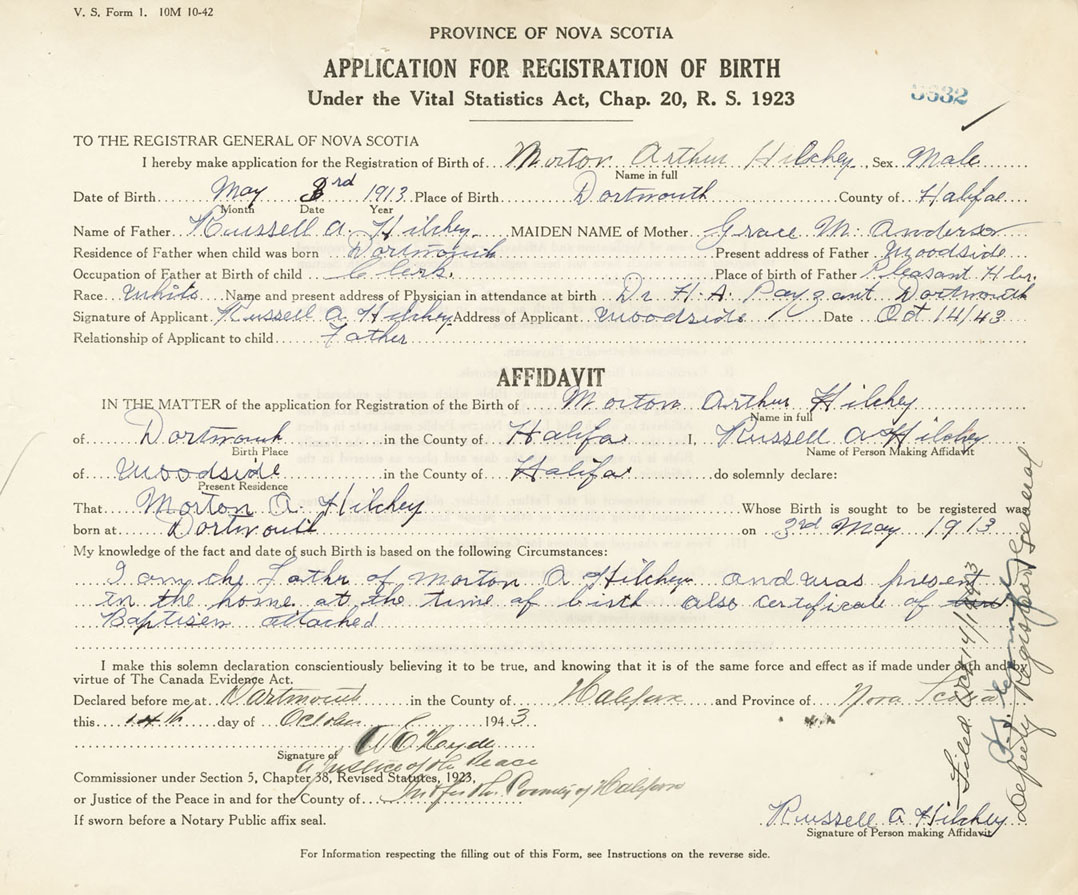 V. S. Form 1. 10M 10-42
PROVINCE OF NOVA SCOTIA
APPLICATION FOR REGISTRATION OF BIRTH
Under the Vital Statistics Act, Chap. 20, R. S. 1923
3632
TO THE REGISTRAR GENERAL OF NOVA SCOTIA
I hereby make application for the Registration of Birth of Morton Arthur Hilchey Sex Male
Name in full
Date of Birth May 3rd 1913 Place of Birth Dartmouth County of Halifax
Month Date Year
Name of Father Russell A. Hilchey MAIDEN NAME of Mother Grace M. Anderson
Residence of Father when child was born Dartmouth Present address of Father Woodside
Occupation of Father at Birth of child Clerk. Place of birth of Father Pleasant Hbr.
Race White Name and present address of Physician in attendance at birth Dr. H. A. Payzant Dartmouth
Signature of Applicant Russell A Hilchey Address of Applicant Woodside Date Oct 14/43
Relationship of Applicant to child Father
AFFIDAVIT
IN THE MATTER of the application for Registration of the Birth of Morton Arthur Hilchey
Name in full
of Dartmouth in the County of Halifax I, Russell A Hilchey
Birth Place Name of Person Making Affidavit
of Woodside in the County of Halifax do solemnly declare:
Present Residence
That Morton A. Hilchey Whose Birth is sought to be registered was
born at Dartmouth on 3rd May 1913
My knowledge of the fact and date of such Birth is based on the following Circumstances:
I am the Father of Morton A Hilchey and was present
in the home at the time of birth also certificate of
Baptism attached
I make this solemn declaration conscientiously believing it to be true, and knowing that it is of the same force and effect as if made under oath and by
virtue of The Canada Evidence Act.
Declared before me at Dartmouth in the County of Halifax and Province of Nova Scotia
this 14th day of October 1943
Signature of
a Justice of the Peace
Commissioner under Section 5, Chapter 38, Revised Statutes, 1923,
or Justice of the Peace in and for the County of In & for the County of Halifax
If sworn before a Notary Public affix seal.
Russell A Hilchey
Signature of Person making Affidavit
For Information respecting the filling out of this Form, see Instructions on the reverse side.
Filed Oct 14/1943
Deputy Registrar General